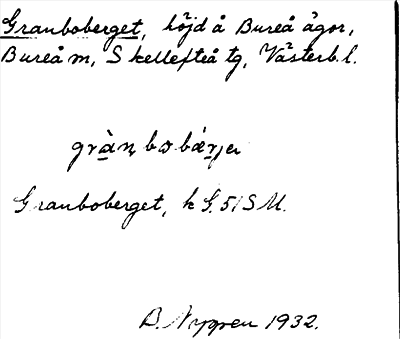 Granboberget, höjd å Bureå ägor,
Bureå m, Skellefteå tg, Västerb. l.
grànˎbωbæ̀rjer
Granboberget, k G. 51 S M.
B. Nygren 1932.